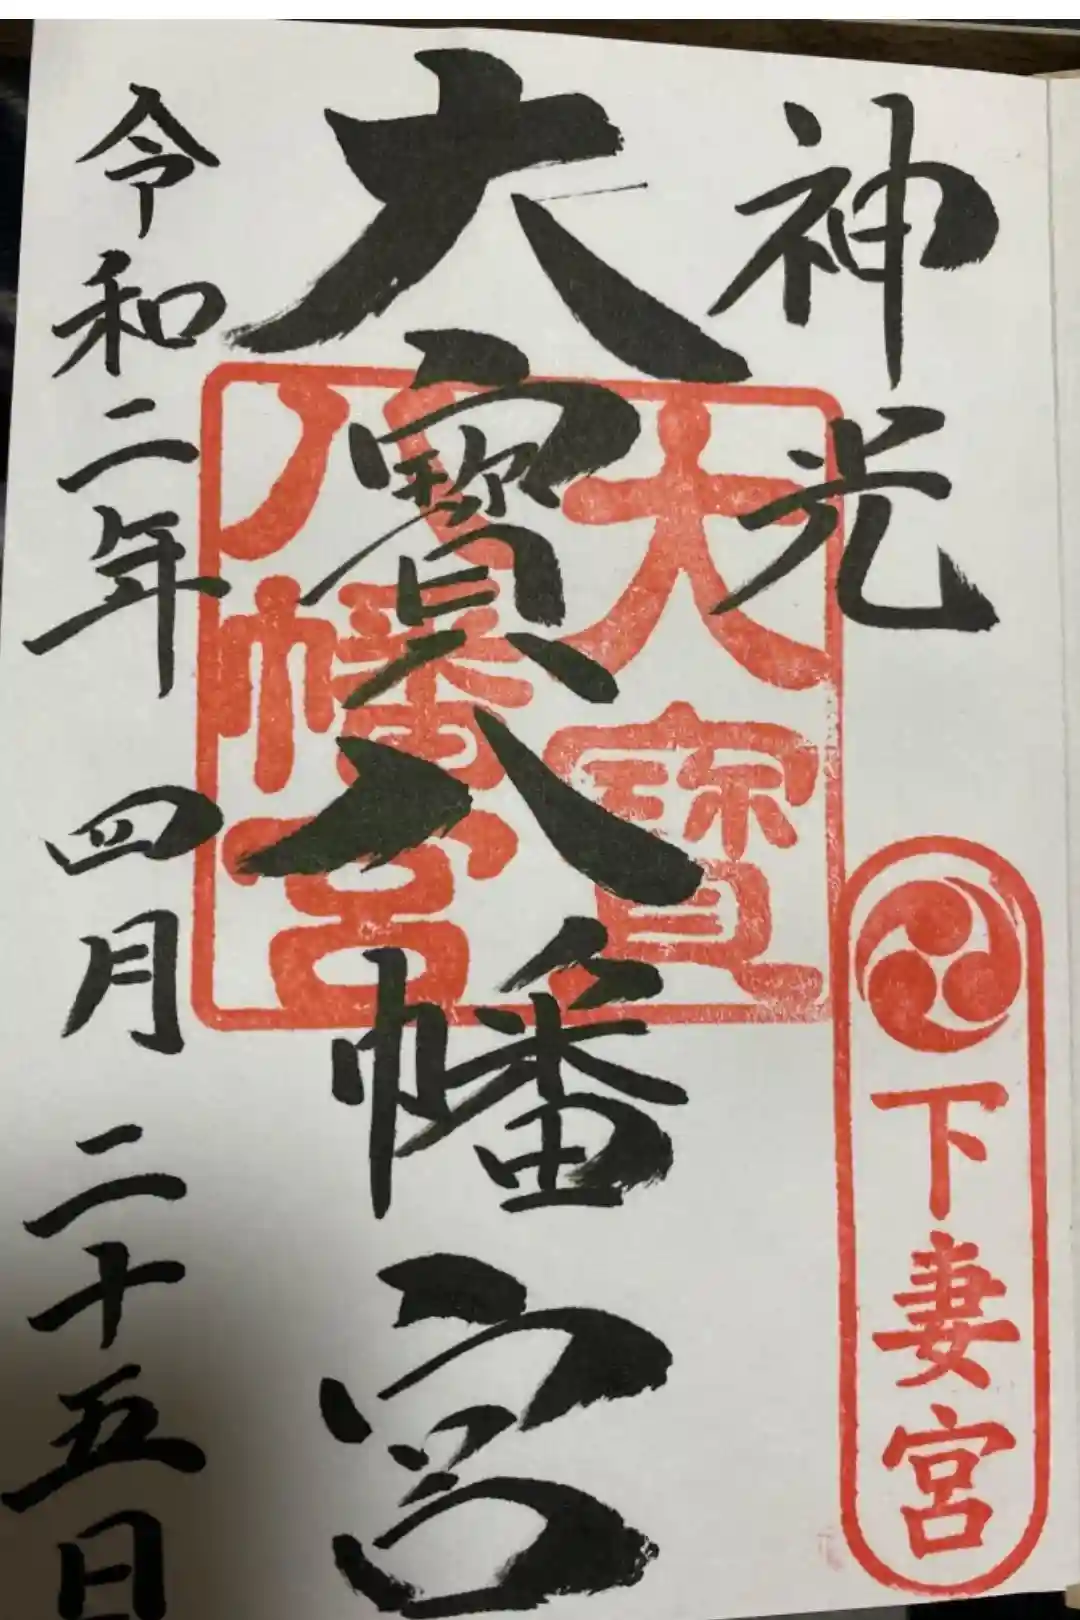 神光
下妻宮
大寶八幡宮
大寶
八幡宮
令和二年 四月 二十五日